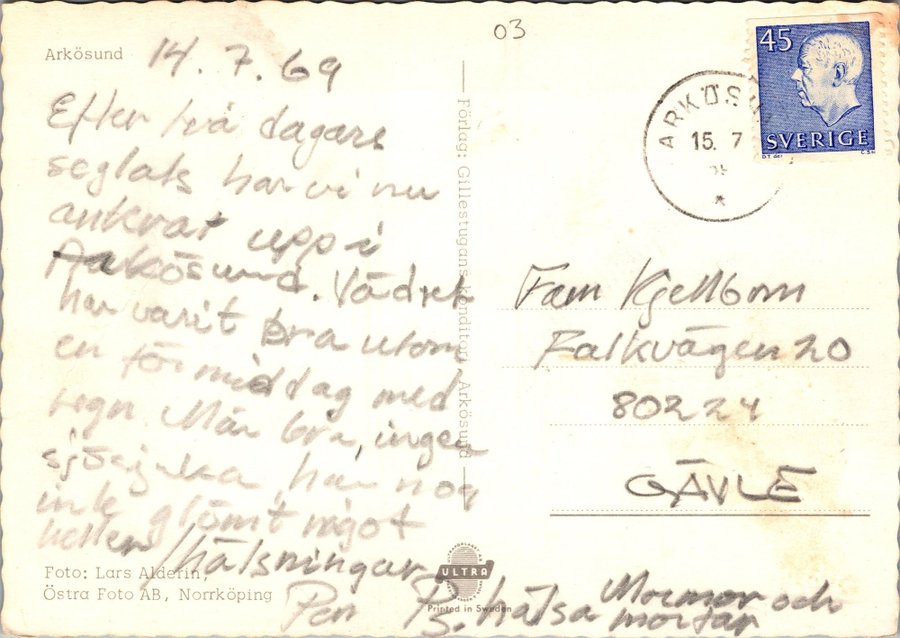 03
Arkösund
14.7.69
Efter två dagars
seglats har vi nu
ankrat upp i
Arkösund. Vädret
har varit bra utom
en förmiddag med
regn. Mår bra, ingen
sjösjuka, har nog
inte glömt något
heller / hälsningar
Per
Ps. hälsa Mormor och
morfar
Foto: Lars Alderin,
Östra Foto AB, Norrköping
Förlag: Gillestugans konditori, Arkösund
ULTRA
Printed in Sweden
ARKÖSU
15. 7
45
SVERIGE
Fam Kjellbom
Falkvägen 20
80224
GÄVLE